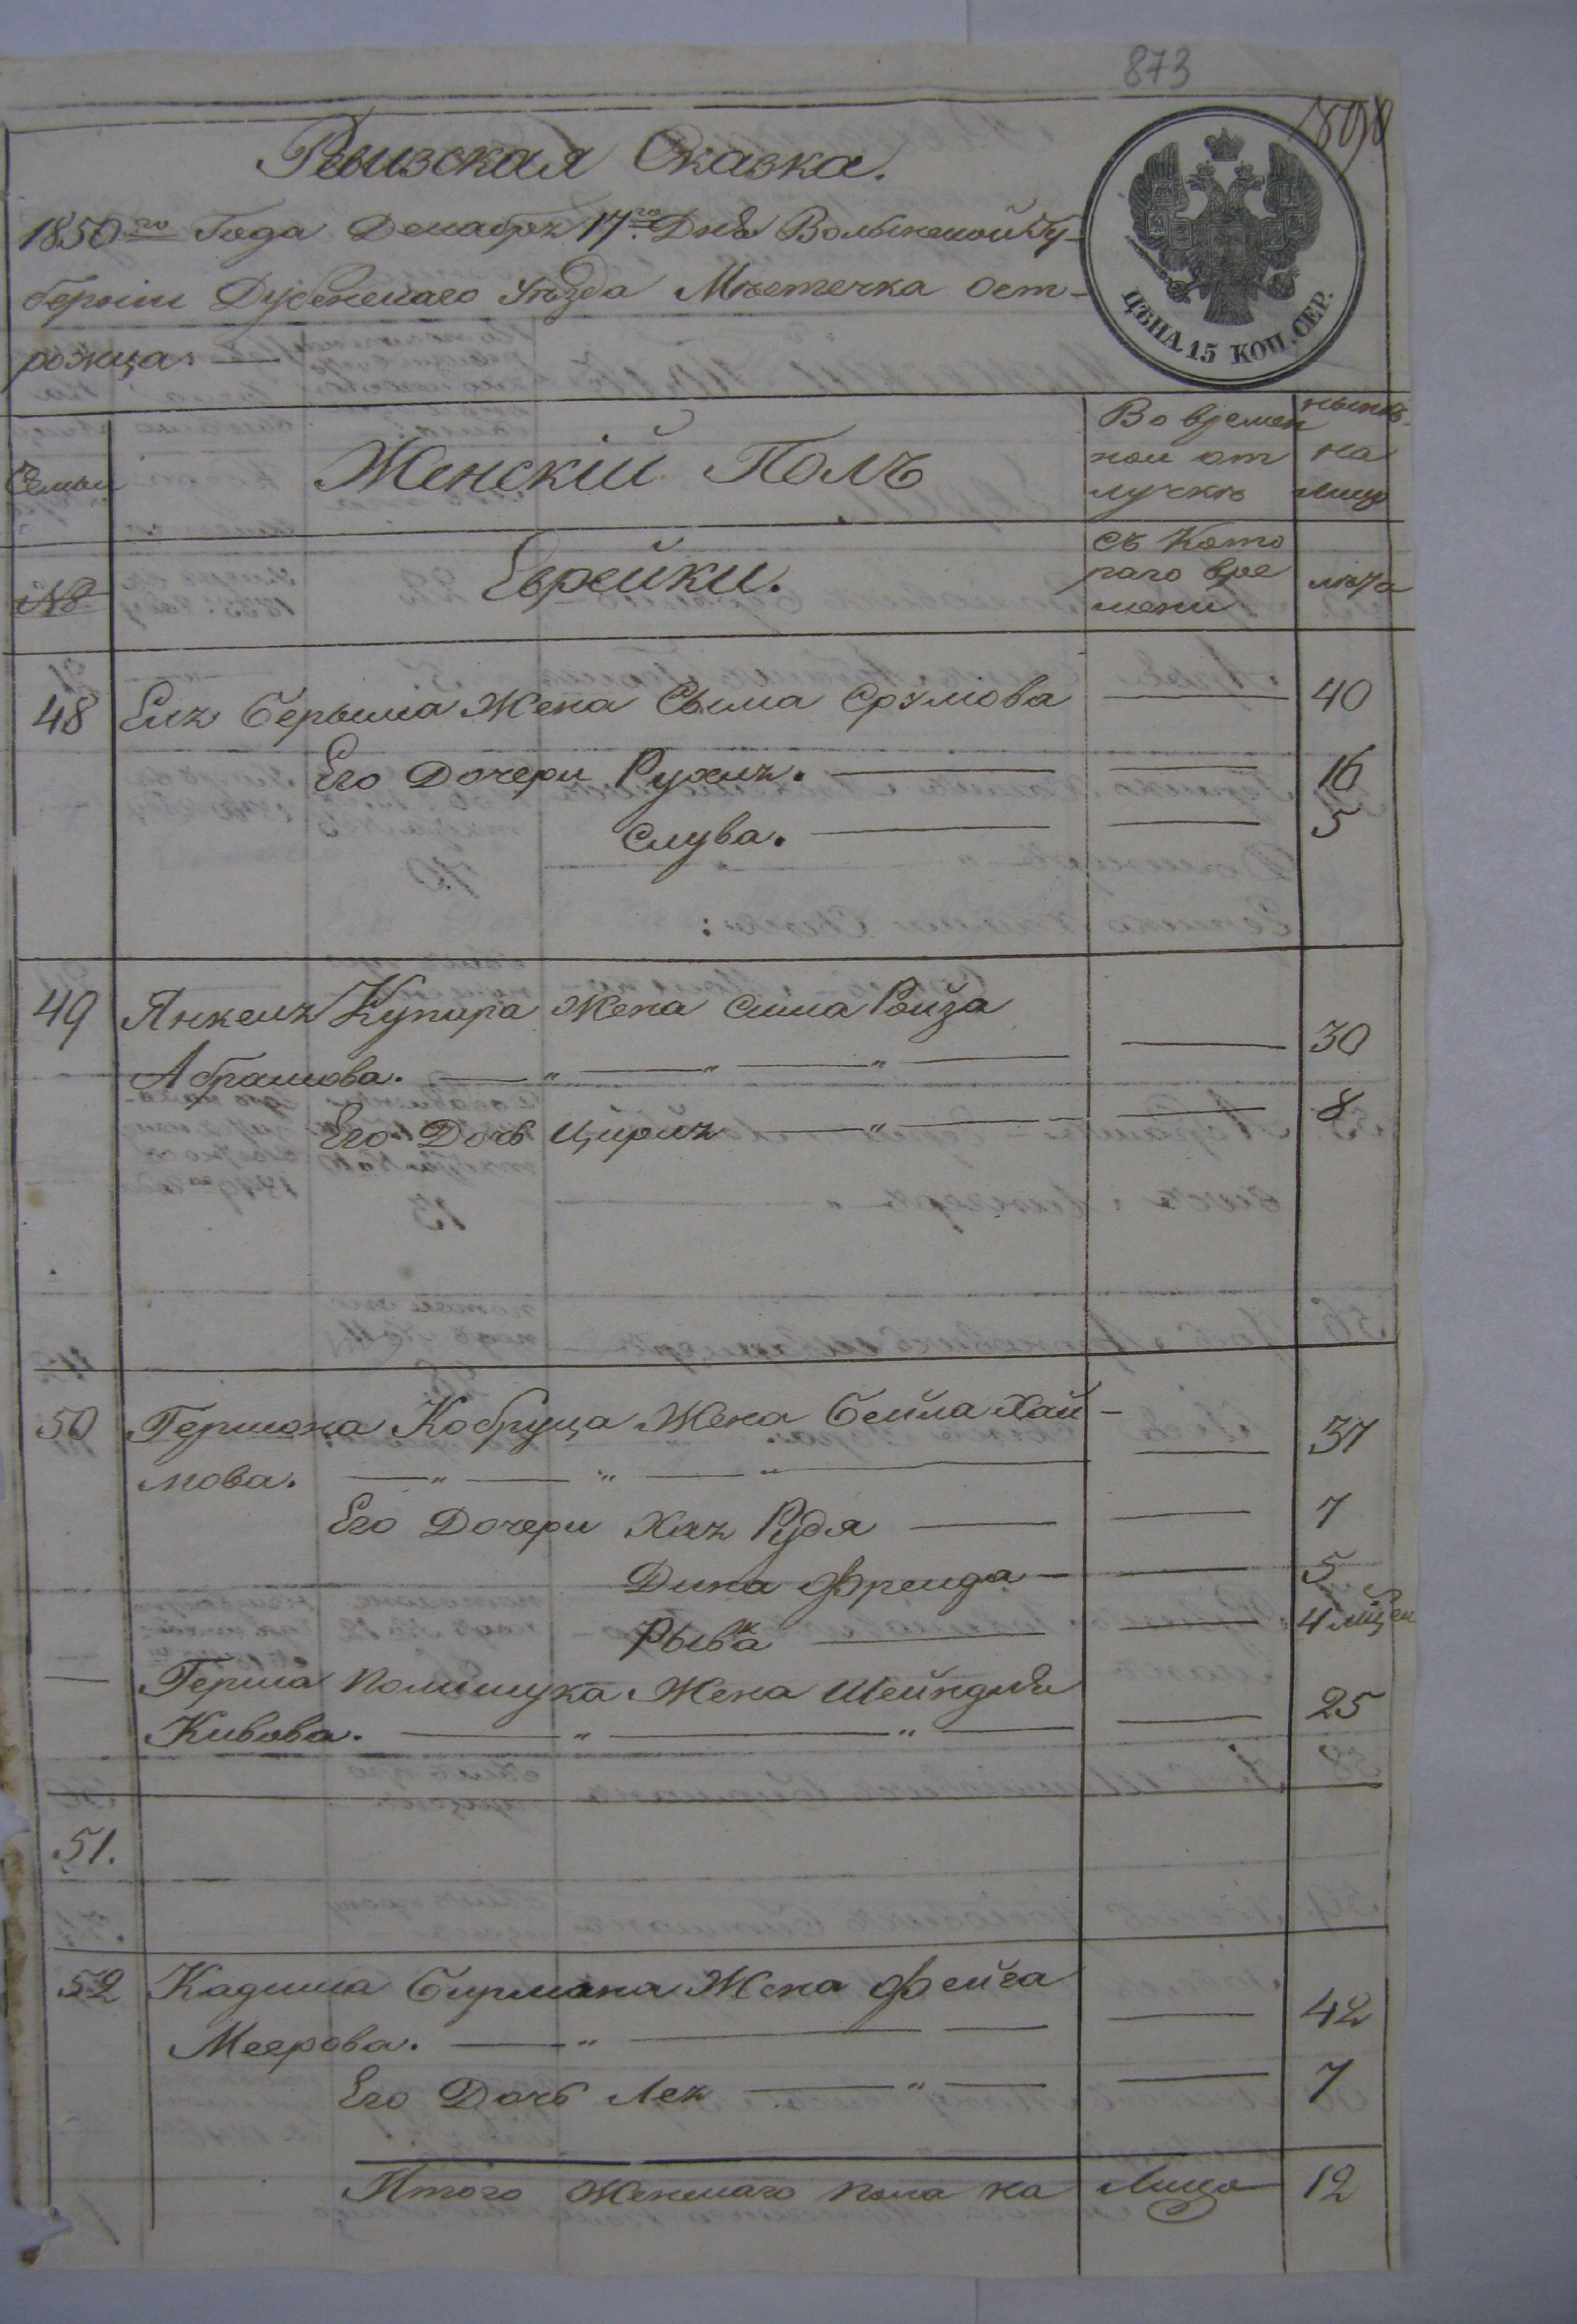 873
Ревизская Сказка.
1850го Года Декабря 17го Дня Волынской Гу-
берніи Дубенскаго Уѣзда Мѣстечка Ост-
рожца.
ЦѢНА 15 КОП. СЕР.
Семьи
Женскій Полъ
Во времен
ной от
лучкѣ
нынѣ
на
лицо
№
Еврейки.
съ Кото
раго вре
мени
лѣта
48 Жена Сыма Срулова 40
Его Дочери Рухля. 16
Слува. 5
49 Янкеля Купира Жена Роиза
Абрамова. 30
Его Дочь Цирля 8
50 Гершона Кобруца Жена Бейла Хай-
мова. 37
Его Дочери Хая Рудя 7
Дина Фрейда 5
Рывка 4
Герша Полищука Жена Шейндля
Кивова. 25
51.
52 Кадиша Бирмана Жена Фейга
Меерова. 42
Его Дочь Лея 7
Итого Женскаго пола на Лицо 12